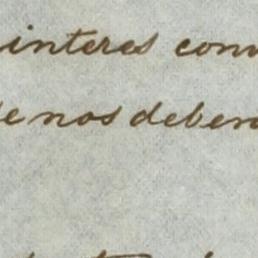 interes com
e nos deben